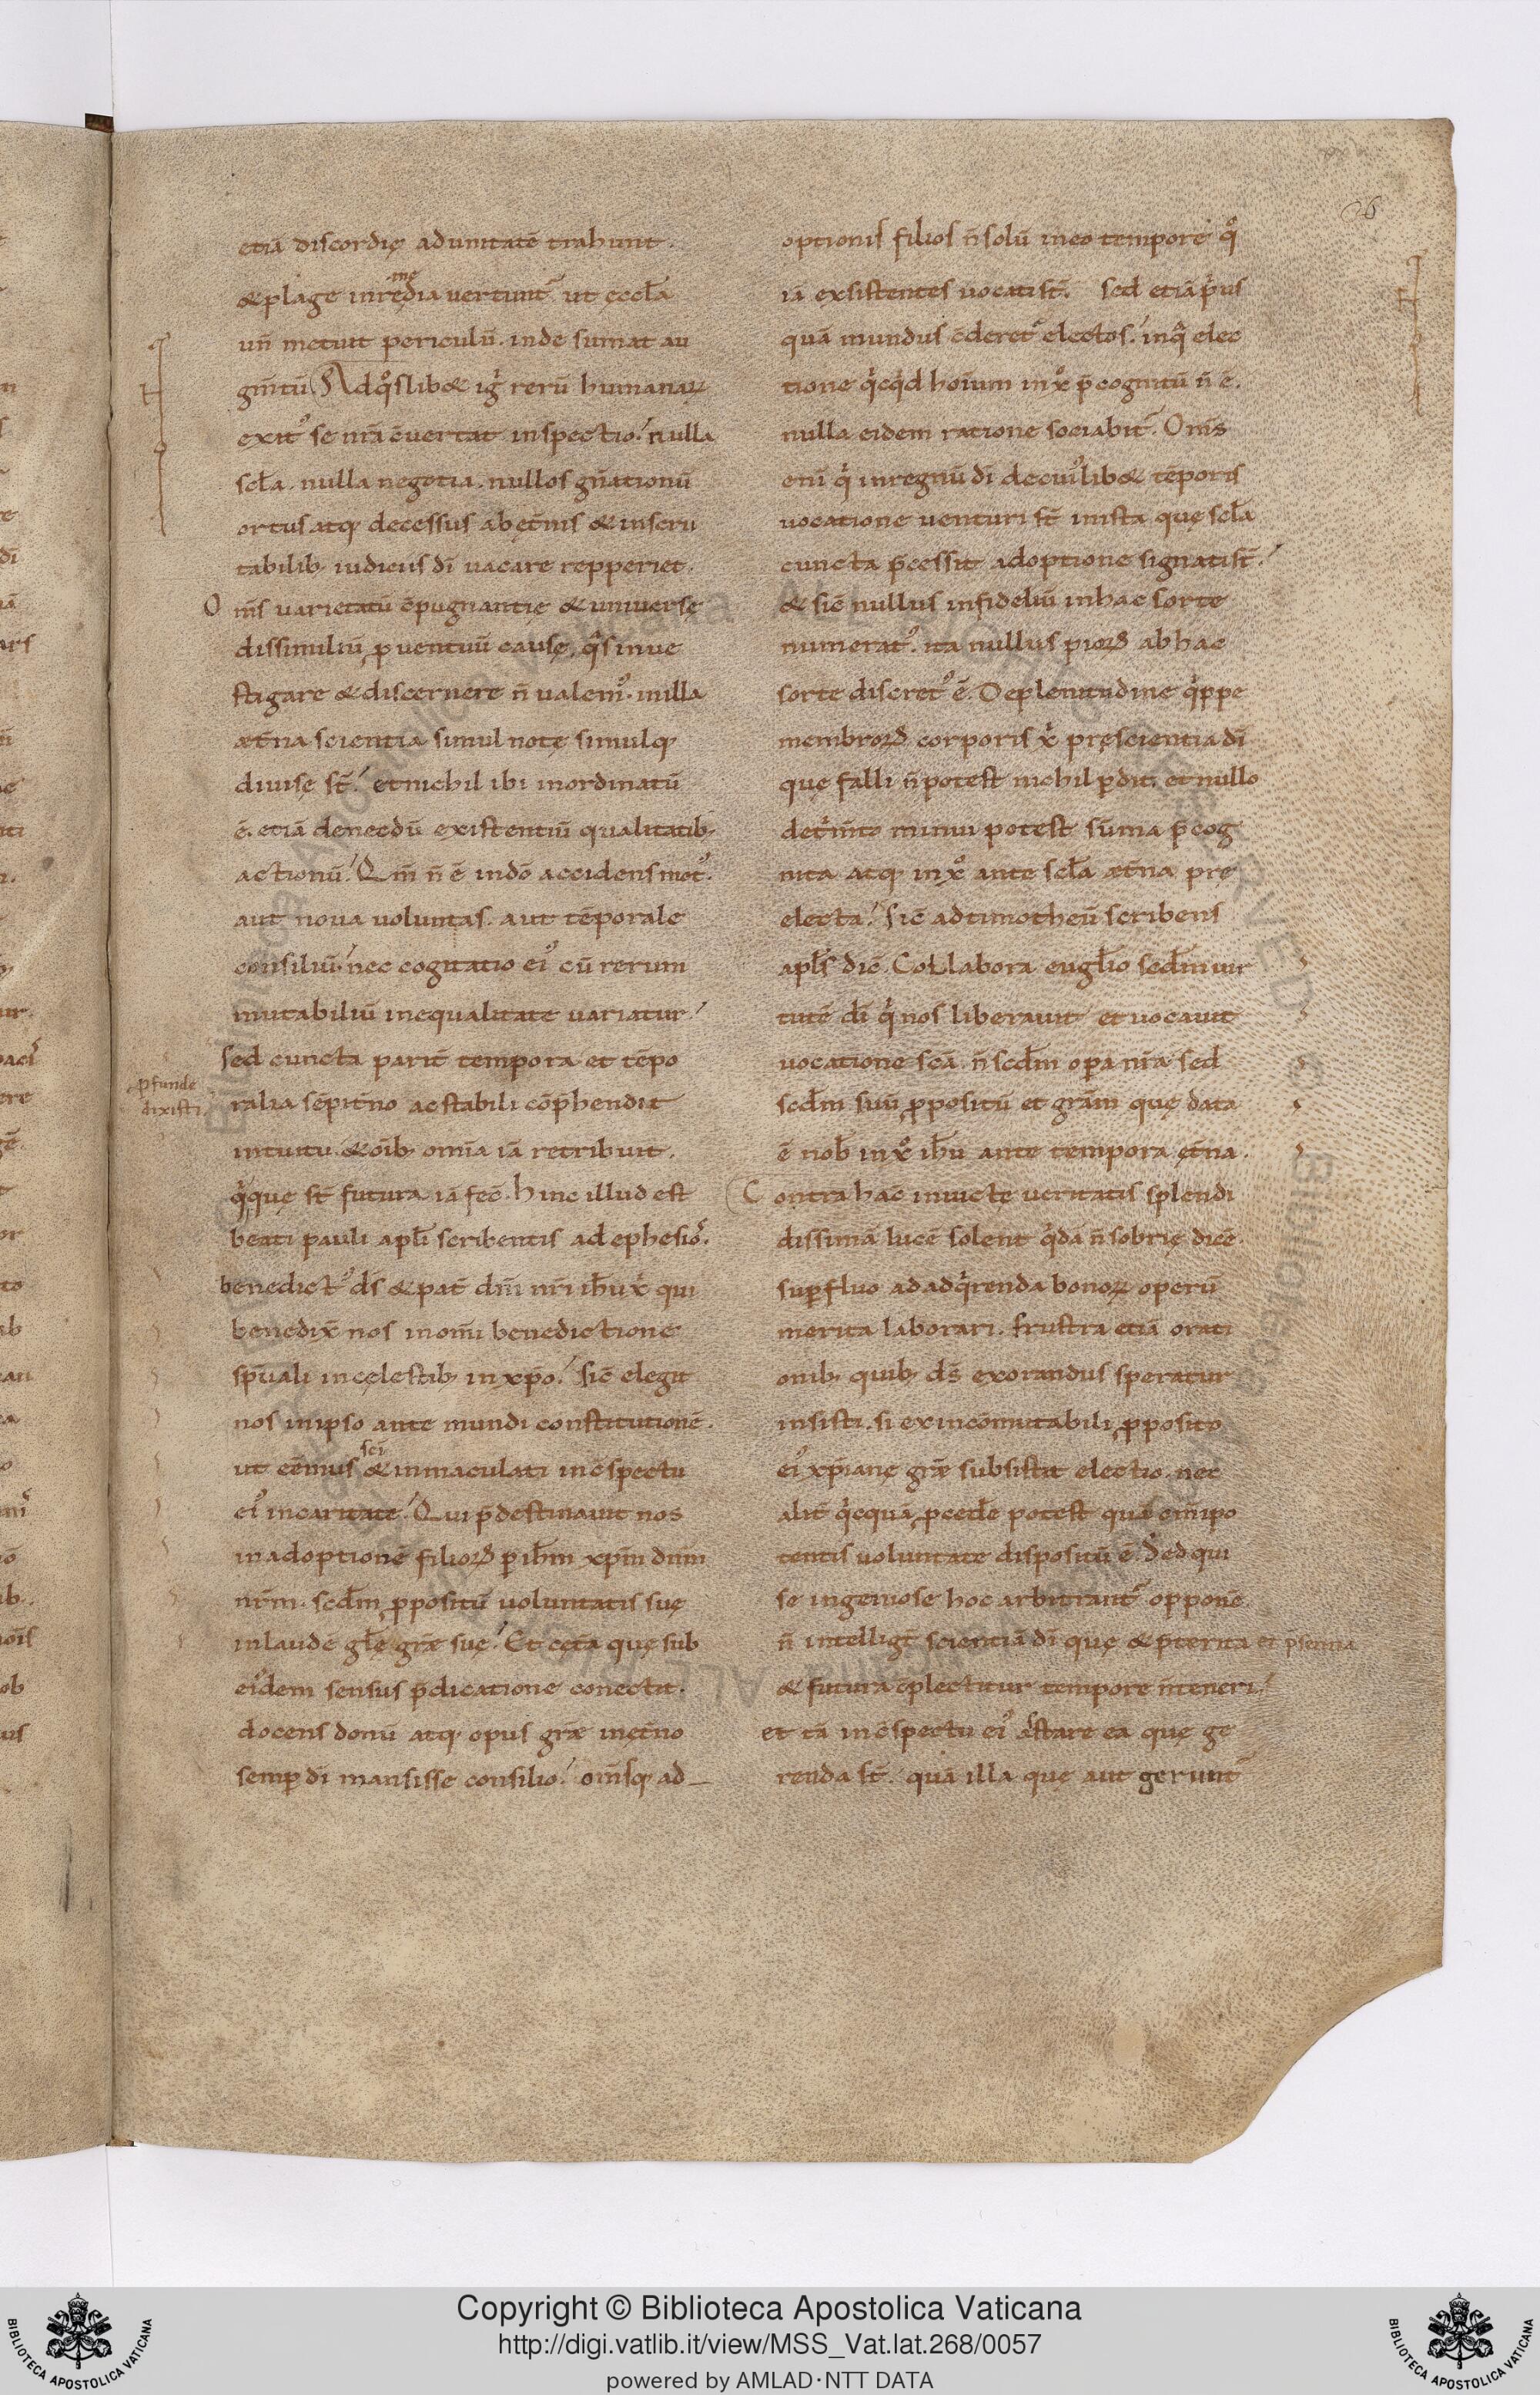 26
etiā discordię ad unitatē trahunt.
& plage in redia uertunt᷑ ut ęccl̄a
me
un̄ metuit periculū. inde sumat au
gm̄tū. Ad qͦslib& igͥ rerū humanaꝝ
exitꝰ se nr̄a c̄uertat inspectio. nulla
scl̄a. nulla negotia. nullos gn̄ationū
ortus atq; decessus ab ęt̄nis & inscru
tabilib; iudiciis dī uacare repperiet.
Om̄s uarietatū c̄pugnantię & uniuersę
dissimiliū ꝓuentuū causę, qͣs inue
stigare & discernere n̄ ualemꝰ. in illa
æt̄na scientia simul notę simulq;
diuisę st̄. et nichil ibi inordinatū
ē. etiā de necdū existentiū qualitatib;
actionū. Qm̄ n̄ ē in dō accidens motꝰ.
aut nova uoluntas. aut tēporale
consiliū. nec cogitatio eiꝰ cū rerum
mutabiliū inequalitate uariatur.
sed cuncta parit̄ tempora et tēpo
ꝓfunde
dixisti.
ralia sēpit̄no ac stabili cōp̄hendit
intuitu. & oīb; omīa iā retribuit.
qͥ que st̄ futura iā fec̄. hinc illud est
beati pauli apl̄i scribentis ad ephesioͬ.
benedictꝰ ds̄ & pat̄ dn̄i nr̄i ih̄u xͥ qui
benedix̄ nos in om̄i benedictione
sp̄uali in cęlestib; in xp̄o. Sic̄ elegit
nos in ipso ante mundi constitutionē.
ut eēmus & inmaculati in c̄spectu
sc̄i
eiꝰ in caritate. Qui p̄destinauit nos
in adoptionē filioꝝ ꝑ ih̄m xp̄m dn̄m
nr̄m. scd̄m ꝓpositū uoluntatis suę
in laudē gl̄ę grae suę. Et cęt̄a quę sub
eiꝰdem sensus p̄dicatione conectit.
docens donū atq; opus gr̄ae in ęt̄no
semꝑ dī mansisse consilio. om̄sq; ad
optionis filios n̄ solū in eo tempore qͦ
iā exsistentes uocati st̄. sed etiā pͥus
quā mundus c̄deret᷑ electos. in qͣ elec
tione qͥcqͥd hoīum in xͦ p̄cognitū n̄ ē.
nulla eidem ratione sociabit᷑. Om̄s
enī qͥ in regnū dī de cuiꝰlib& tēporis
uocatione uenturi st̄ in ista quę scl̄a
cuncta p̄cessit adoptione signati st̄.
& sic̄ nullus infideliū in hac sorte
numeratꝰ. ita nullus pioꝝ ab hac
sorte discretꝰ ē. De plenitudine qͥppe
membroꝝ corporis xͥ pręscientia dī
quę falli n̄ potest nichil ꝑdit. et nullo
detͥm̄to minui potest sūma p̄cog
nita atq; in xͦ ante scl̄a æt̄na pre
electa. Sic̄ ad timotheū scribens
apl̄s dic̄. Collabora eugl̄io secd̄m uir
tutē dī qͥ nos liberauit et uocauit
uocatione sc̄ā. n̄ scd̄m oꝑa nr̄a sed
scd̄m suū ꝓpositū et gr̄am quę data
ē nob̄ in xͦ ih̄u ante tempora ęt̄na.
Contra hāc inuictę ueritatis splendi
dissimā lucē solent qͥdā n̄ sobrię dic̄e.
suꝑfluo ad adqͥrenda bonoꝝ operū
merita laborari. frustra etiā orati
onib; quib; ds̄ exorandus speratur
insisti. si ex incōmutabili ꝓposito
eiꝰ xp̄ianę gr̄ae subsistit electio. nec
alit̄ qͥcquā ꝓced̄e potest quā om̄ipo
tentis uoluntate dispositū ē. Sed qui
se ingeniose hoc arbitrant᷑ opponē
n̄ intelligt̄ scientiā dī quę & p̄terita et p̄sentia
& futura c̄plectitur tempore n̄ teneri.
et tā in c̄spectu eiꝰ astare ea quę ge
renda st̄. quā illa quę aut gerunt᷑
Copyright © Biblioteca Apostolica Vaticana
http://digi.vatlib.it/view/MSS_Vat.lat.268/0057
powered by AMLAD·NTT DATA
BIBLIOTECA APOSTOLICA VATICANA
BIBLIOTECA APOSTOLICA VATICANA